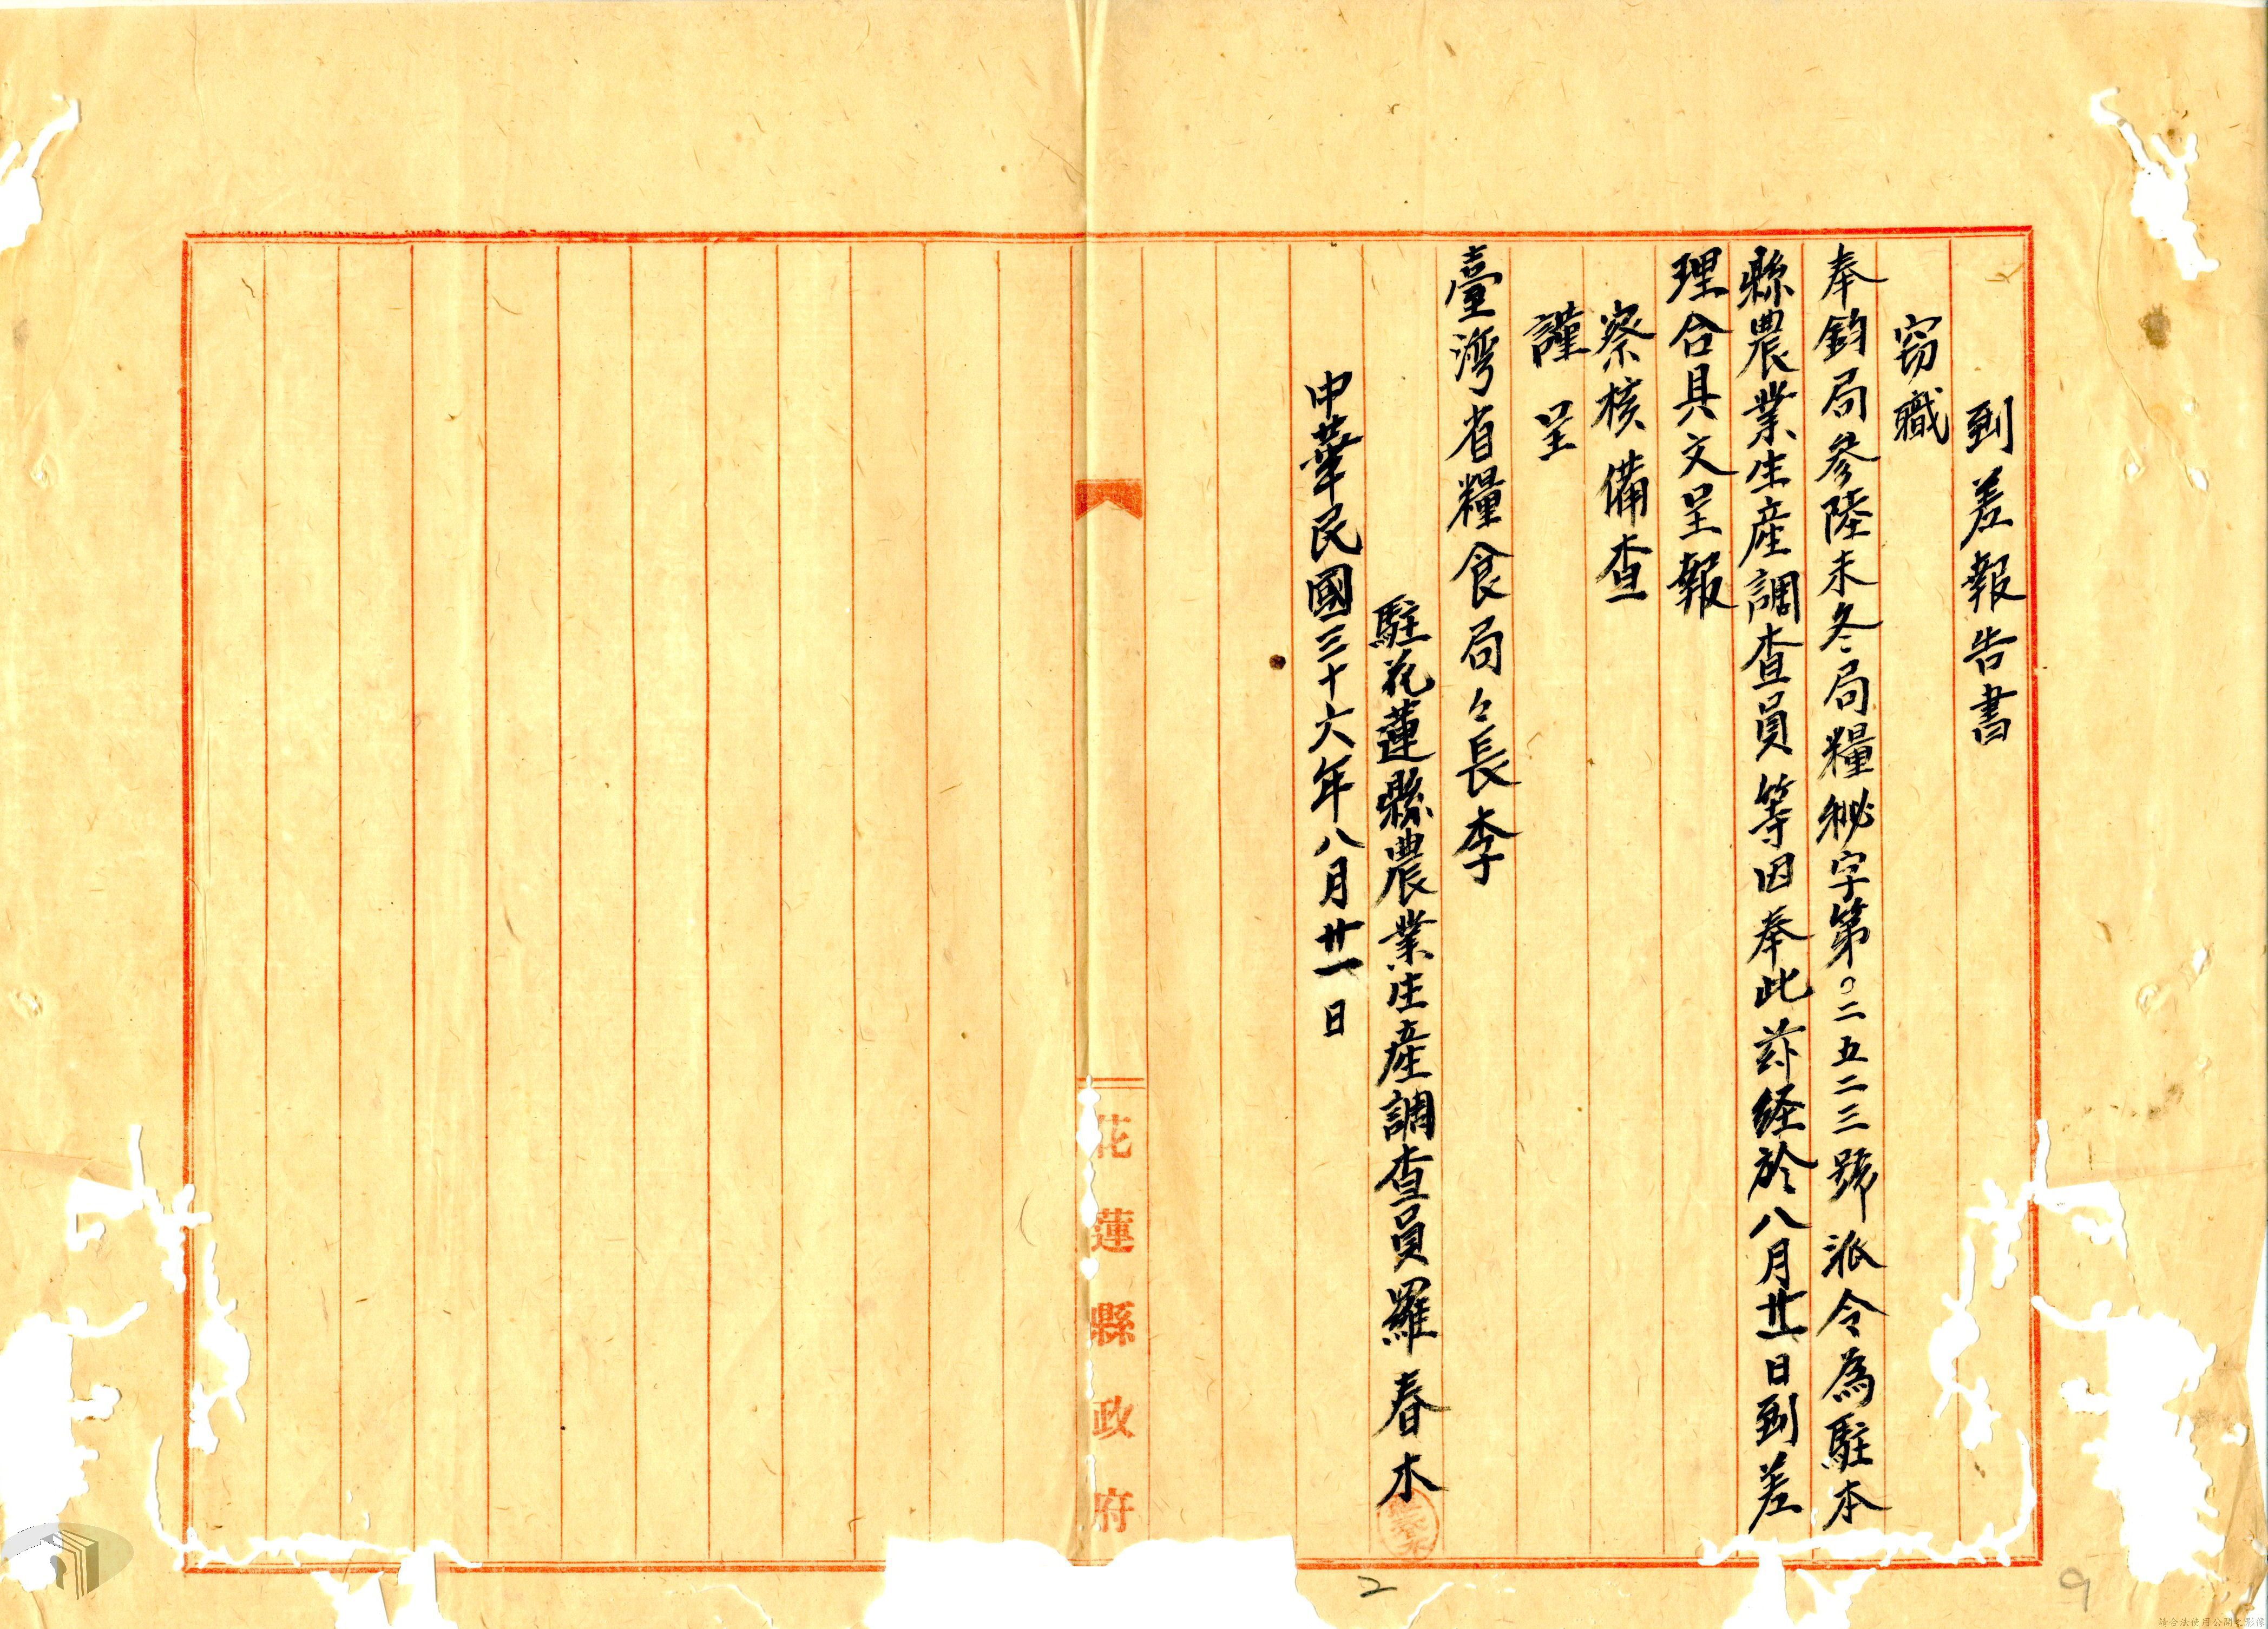 到差報告書
窃職
奉鈞局參陸未冬局糧秘字第○二五二三號派令為駐本
縣農業生産調查員等因奉此茲経於八月廿一日到差
理合具文呈報
察核備查
謹呈
臺灣省糧食局々長李
駐花蓮縣農業生産調查員羅春木
中華民國三十六年八月廿一日
花蓮縣政府
2
9
請合法使用公開之影像